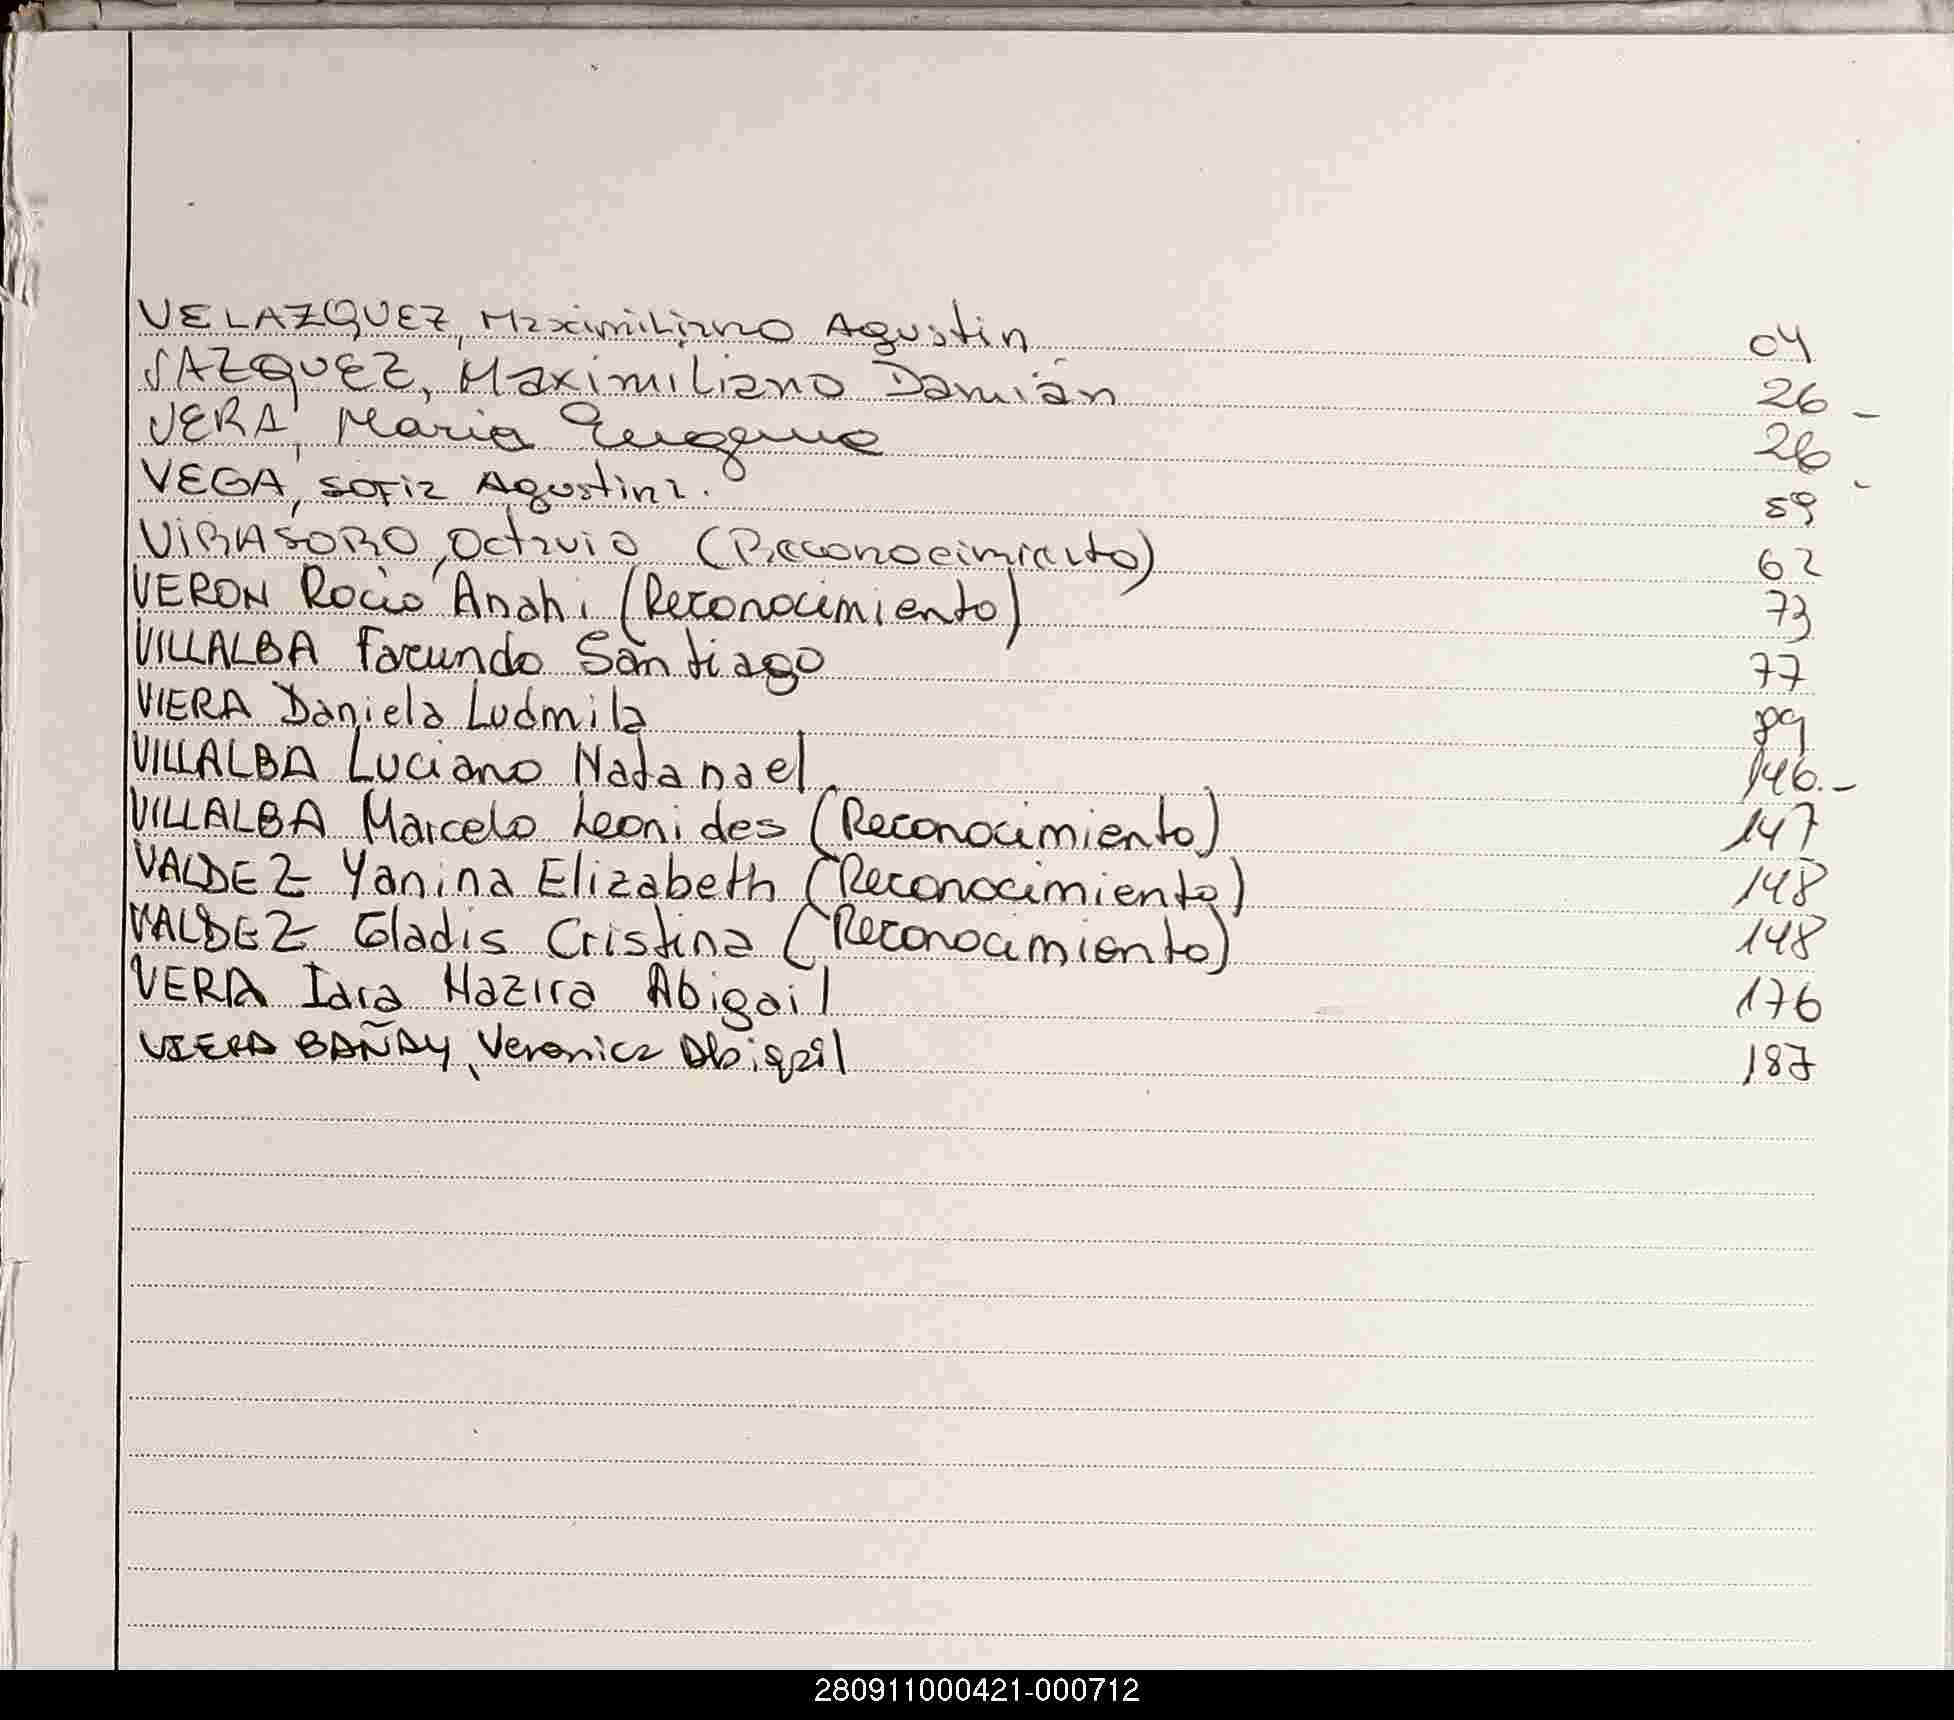 VELAZQUEZ, Maximiliano Agustin 04
VAZQUEZ, Maximiliano Damián 26 -
VERA, Maria Eugenia 26
VEGA, Sofia Agustina. 59
VIRASORO, Octavio (Reconocimiento) 62
VERON Rocio Anahi (Reconocimiento) 73
VILLALBA Facundo Santiago 77
VIERA Daniela Ludmila 89
VILLALBA Luciano Natanael 146.-
VILLALBA Marcelo Leonides (Reconocimiento) 147
VALDEZ Yanina Elizabeth (Reconocimiento) 148
VALDEZ Gladis Cristina (Reconocimiento) 148
VERA Iara Nazira Abigail 176
VIERA BAÑAY, Veronica Abigail 187
280911000421-000712